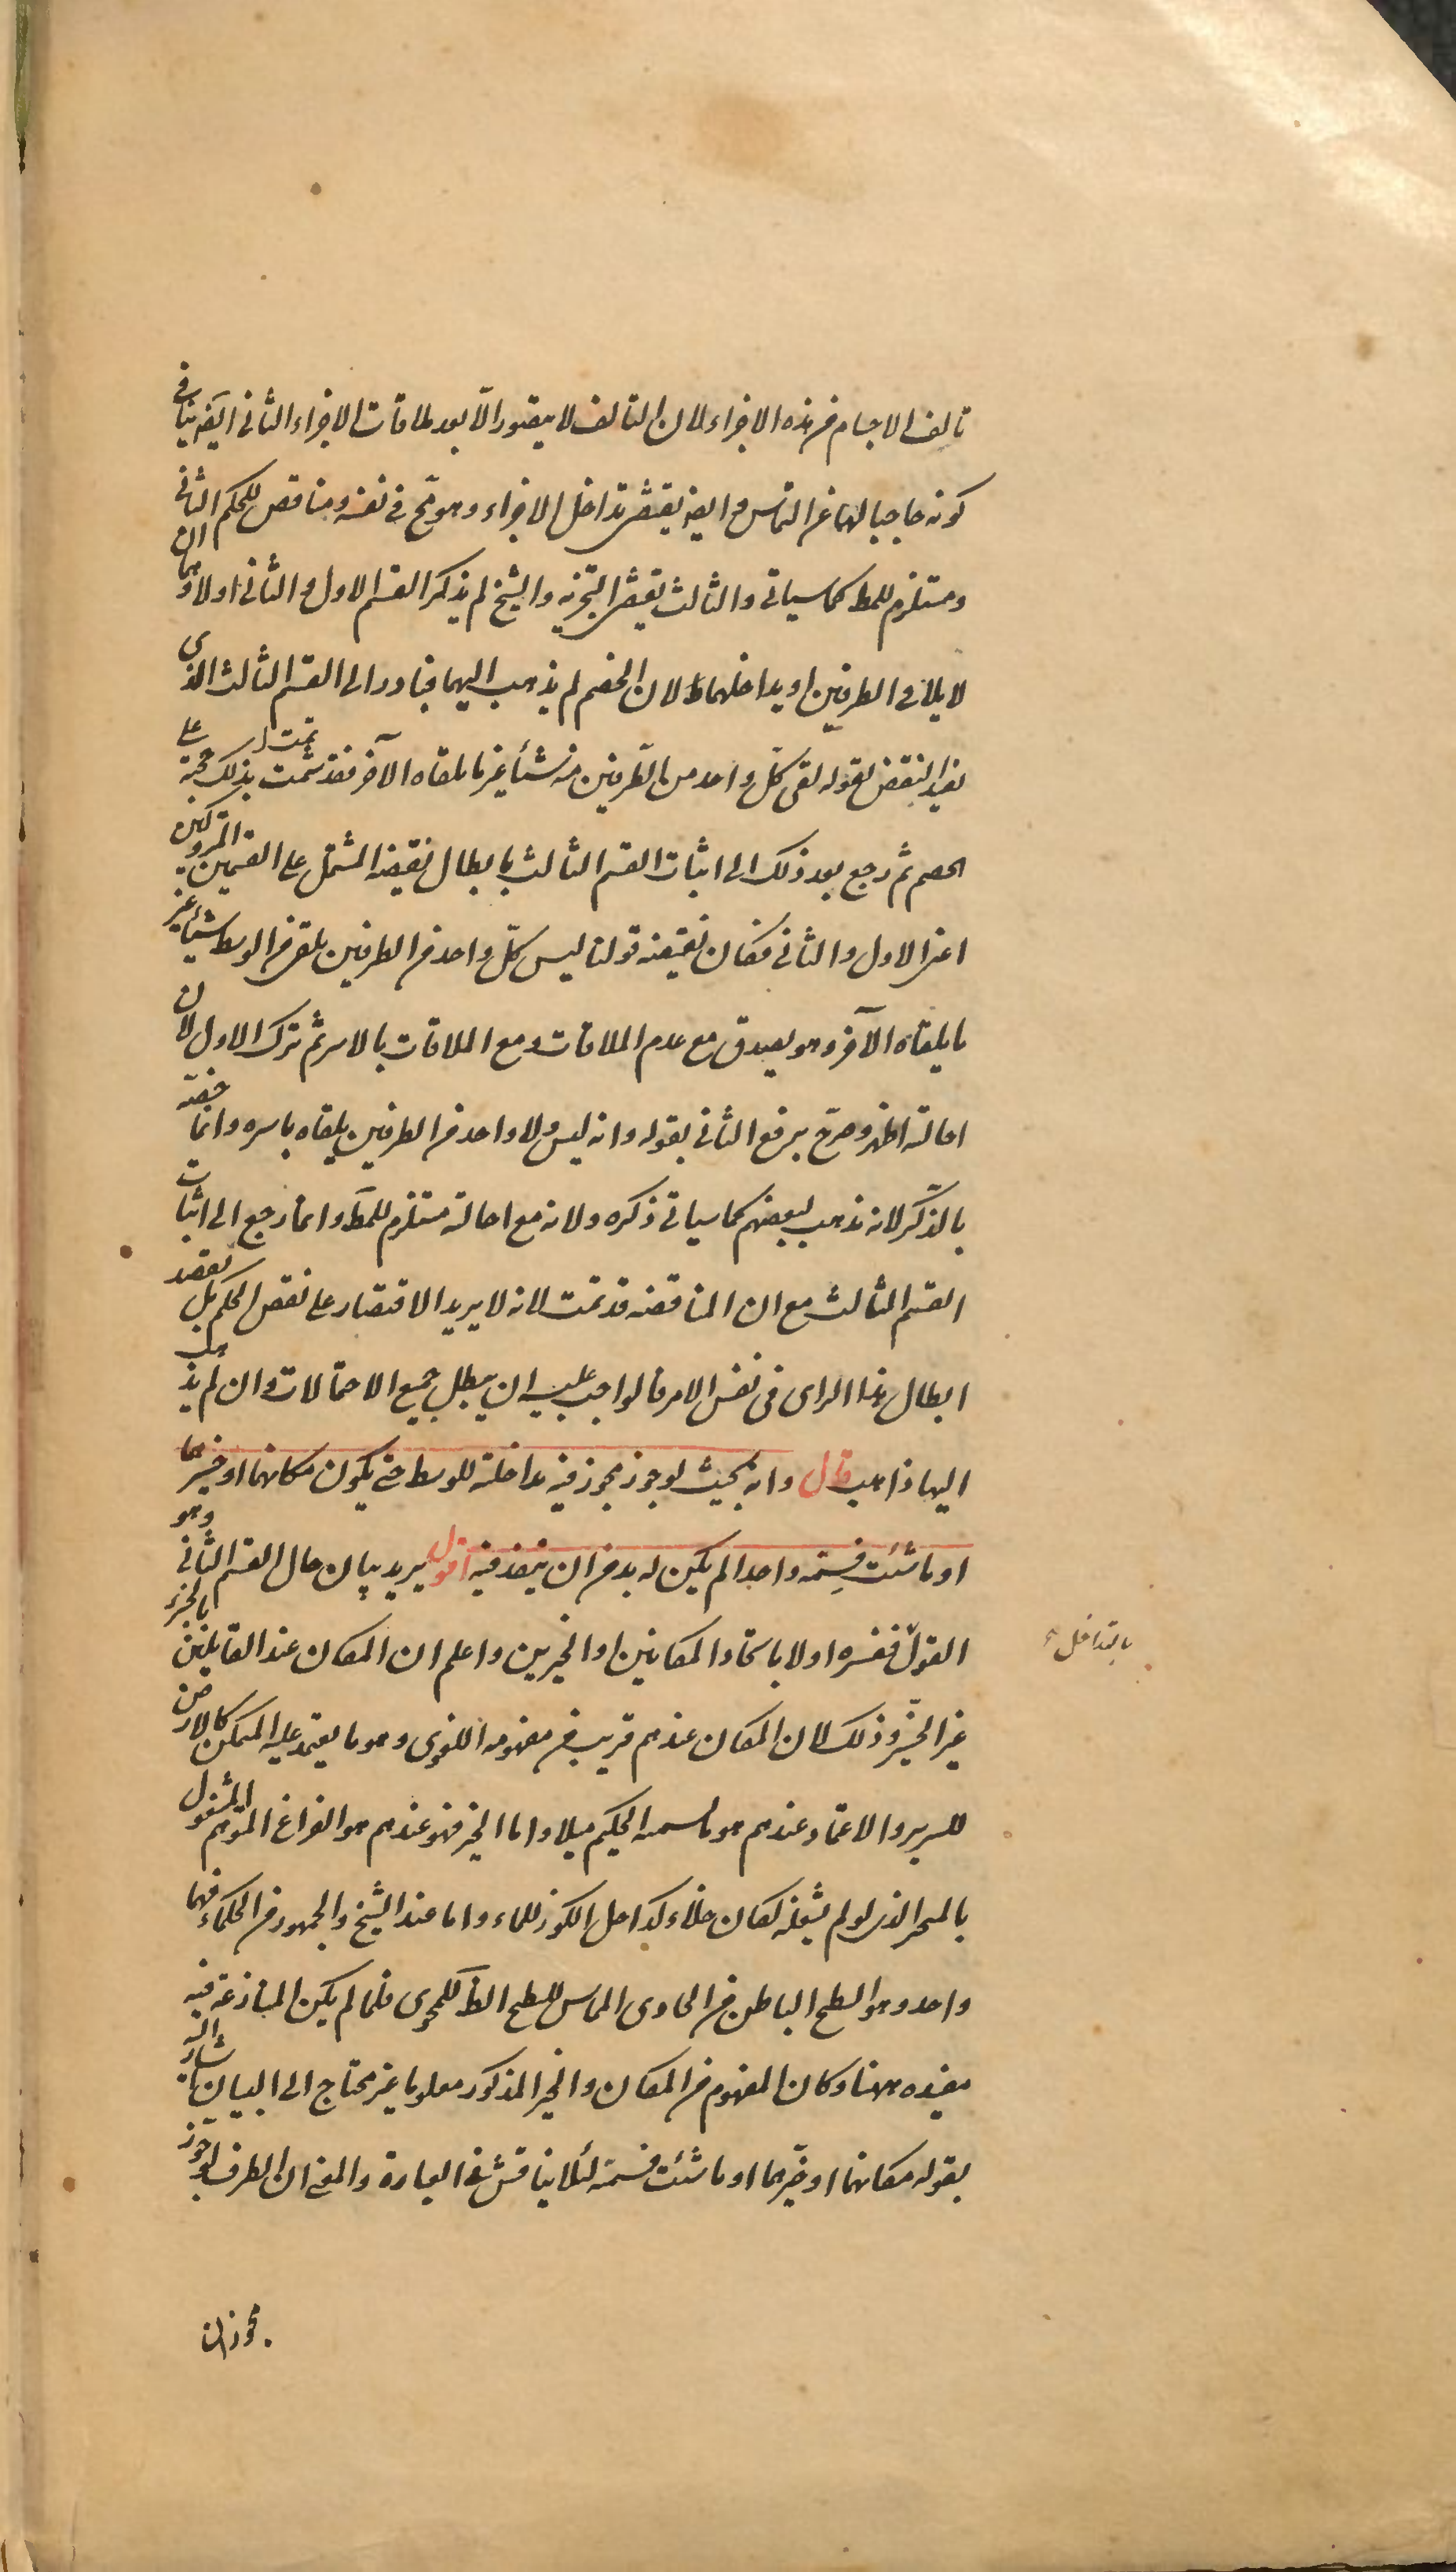 تالف الاجسام من هذه الاجزاء لان التالف لا يتصور الا بعد ملاقات الاجزاء الثانى ايضا ينافى
كونه حاجبا لهما عن التماس و ايضا يقتضى تداخل الاجزاء و هو مح فى نفسه و مناقض للحكم الثانى
و مستلزم للمط كما سياتى و الثالث يقتضى التجزيه و الشيخ لم يذكر القسم الاول و الثانى اولا و هما ان
لا يلاقى الطرفين او يداخلهما لان الخصم لم يذهب اليهما فبادر الى القسم الثالث الذى
يفيد النقض لقوله لقى كل واحد من الطرفين منه شيئا غير ما يلقاه الآخر فقد تمت بذلك حجته على
الخصم ثم رجع بعد ذلك الى اثبات القسم الثالث بابطال نقيضه المشتمل على القسمين المتروكين
اعنى الاول و الثانى فكان نقيضه قولنا ليس كل واحد من الطرفين يلقى من الوسط شيئا غير
ما يلقاه الآخر و هو يصدق مع عدم الملاقات و مع الملاقات بالاسر ثم ترك الاول لان
احالته اظهر و صرح برفع الثانى بقوله و انه ليس و لا واحد من الطرفين يلقاه باسره و انما خصه
بالذكر لانه مذهب لبعضهم كما سياتى ذكره و لانه مع احالته مستلزم للمط و انما رجع الى اثبات
القسم الثالث مع ان المناقضه قد تمت لانه لا يريد الاقتصار على نقض الحكم بل يقصد
ابطال هذا الراى فى نفس الامر فالواجب عليه ان يبطل جميع الاحتمالات و ان لم يذهب
اليها ذاهب قال و انه بحيث لو جوز مجوز فيه مداخلته للوسط حتى يكون مكانهما او حيزهما
او ما شئت فسمه واحدا لم يكن له بد من ان ينفذ فيه اقول يريد بيان حال القسم الثانى و هو
القول ففسره اولا باتحاد المكانين او الحيزين و اعلم ان المكان عند القايلين بالجزء
بالتداخل
غير الحيز و ذلك لان المكان عندهم قريب من مفهومه اللغوى و هو ما يعتمد عليه المتمكن كالارض
للسرير و الاعتماد عندهم هو ما يسميه الحكيم ميلا و اما الحيز فهو عندهم هو الفراغ المتوهم المشغول
بالمتحيز الذى لو لم يشغله لكان خلاء كداخل الكوز للماء و اما عند الشيخ و الجمهور من الحكماء فهما
واحد و هو السطح الباطن من الحاوى المماس للسطح الظ للمحوى فلما لم يكن المنازعة فيه
مفيده ههنا و كان المفهوم من المكان و الحيز المذكور معلوما غير محتاج الى البيان اشار اليه
بقوله مكانهما او حيزهما او ما شئت فسمه لئلا يناقش فى العبارة و المعنى ان الطرف لو جوز
مجوز ان